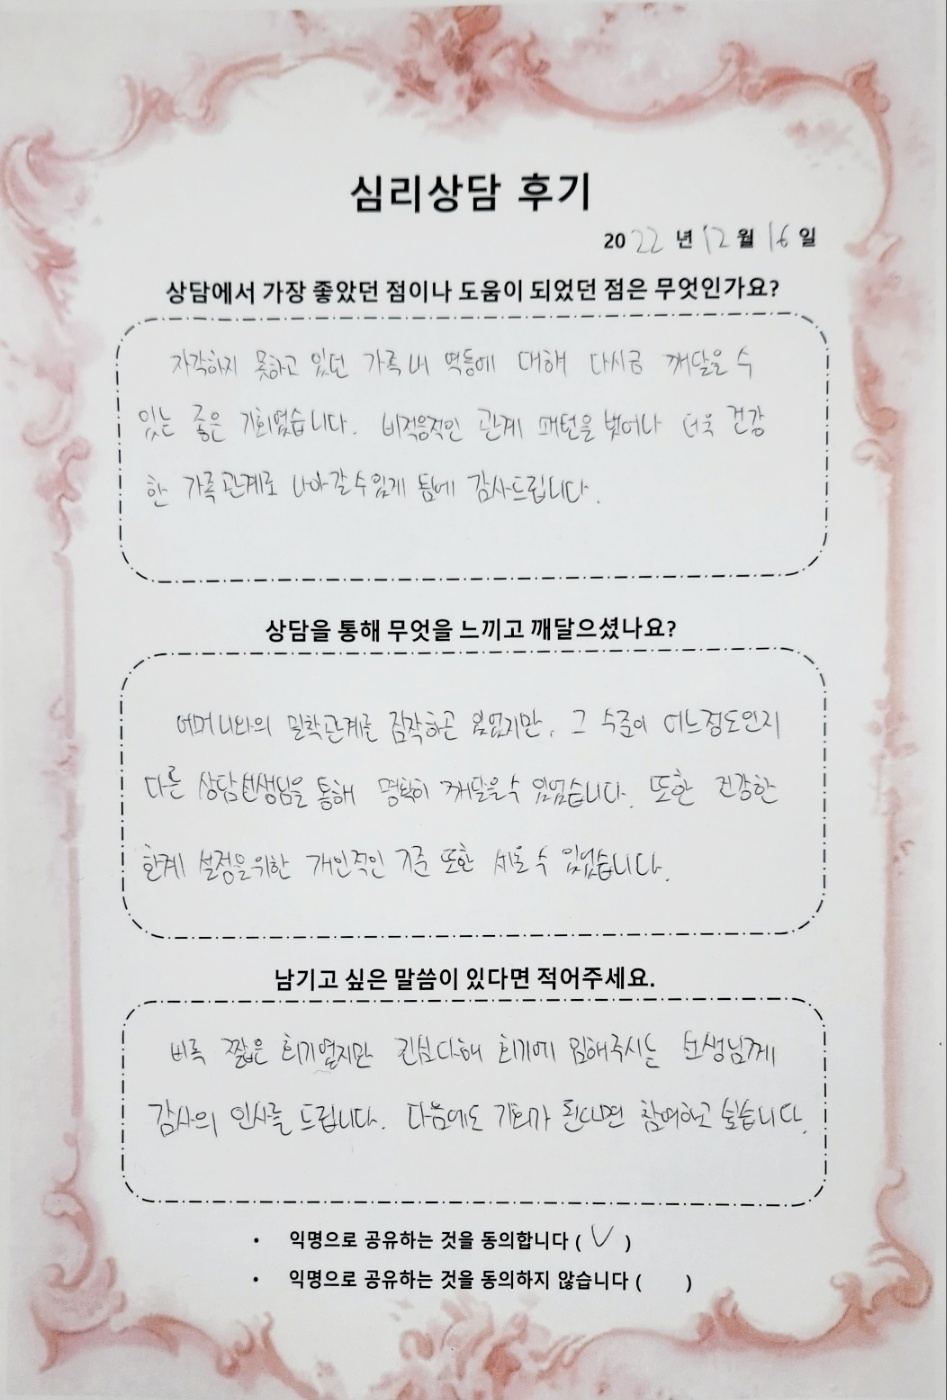 심리상담 후기
2022 년 12 월 16 일
상담에서 가장 좋았던 점이나 도움이 되었던 점은 무엇인가요?
자각하지 못하고 있던 가족 내 역동에 대해 다시금 깨달을 수
있는 좋은 기회였습니다. 비적응적인 관계 패턴을 벗어나 더욱 건강
한 가족관계로 나아갈수있게 됨에 감사드립니다.
상담을 통해 무엇을 느끼고 깨달으셨나요?
어머니와의 밀착관계를 짐작하곤 있었지만, 그 수준이 어느정도인지
다른 상담선생님을 통해 명확히 깨달을수 있었습니다. 또한 건강한
한계 설정을위한 개인적인 기준 또한 세울 수 있었습니다.
남기고 싶은 말씀이 있다면 적어주세요.
비록 짧은 회기였지만 진심다해 회기에 임해주시는 선생님께
감사의 인사를 드립니다. 다음에도 기회가 된다면 참여하고 싶습니다.
• 익명으로 공유하는 것을 동의합니다 ( V )
• 익명으로 공유하는 것을 동의하지 않습니다 ( )